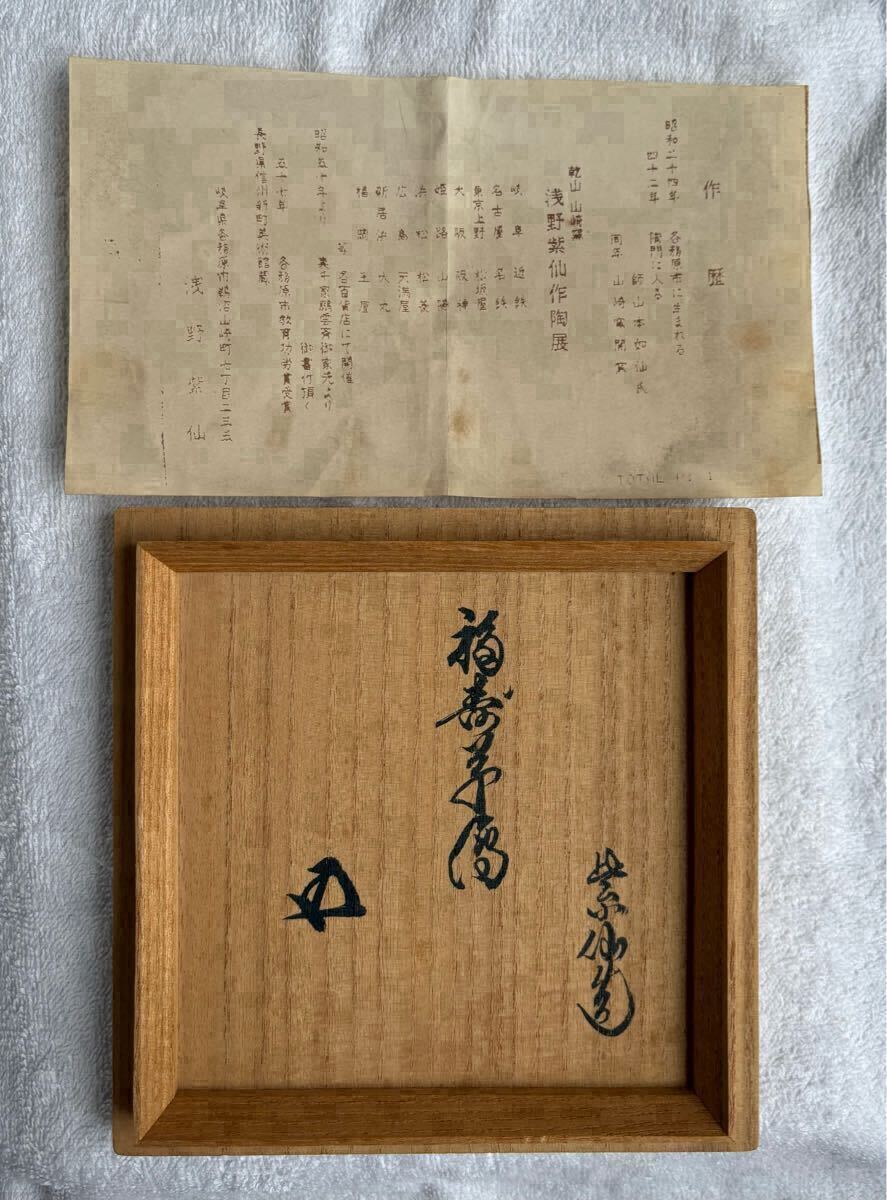 作歴
昭和二十四年 各務原市に生まれる
四十二年 陶門に入る
師山本如仙氏
同年 山崎窯開窯
乾山 山崎窯
浅野紫仙作陶展
岐阜 近鉄
名古屋 名鉄
東京上野 松坂屋
大阪 阪神
姫路 山陽
浜松 松菱
広島 天満屋
新居浜 大丸
福岡 玉屋
等 各百貨店にて開催
昭和五十年より 裏千家鵬雲斉御家元より
御書付頂く
五十七年 各務原市教育功労賞受賞
長野県信州新町美術館蔵
岐阜県各務原市鵜沼山崎町七丁目二三三
浅野紫仙
TOTAL P. 1
紫仙造
福寿草